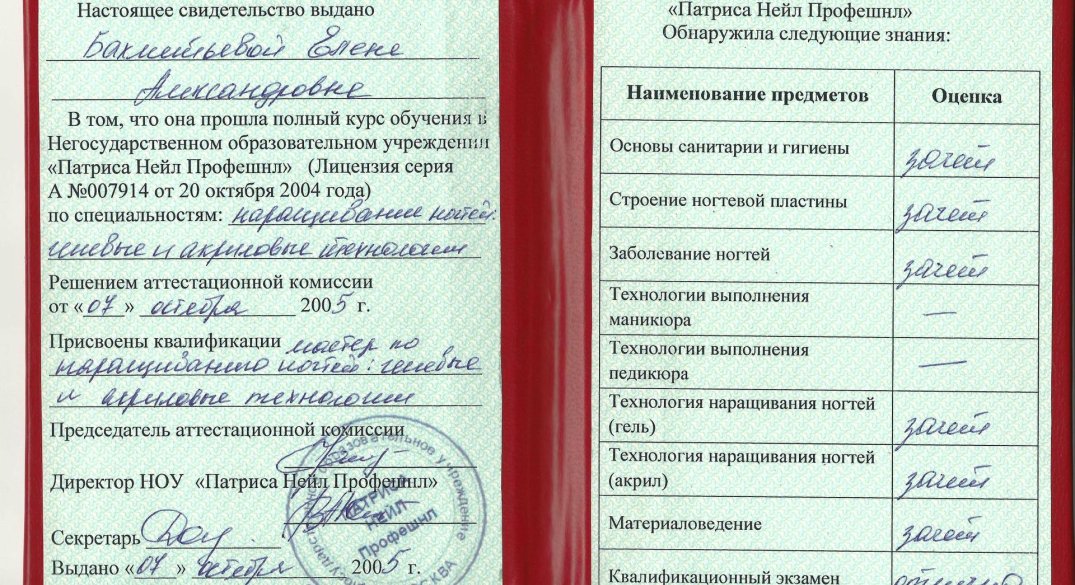 Настоящее свидетельство выдано
Бахмитьевой Елене
Александровне
В том, что она прошла полный курс обучения в
Негосударственном образовательном учреждении
«Патриса Нейл Профешнл» (Лицензия серия
А №007914 от 20 октября 2004 года)
по специальностям: наращивание ногтей:
гелевые и акриловые технологии
Решением аттестационной комиссии
от «07» октября 2005 г.
Присвоены квалификации мастер по
наращиванию ногтей: гелевые
и акриловые технологии
Председатель аттестационной комиссии
Директор НОУ «Патриса Нейл Профешнл»
Секретарь
Выдано «07» октября 2005 г.
образовательное учреждение
ПАТРИСА
НЕЙЛ
Профешнл
МОСКВА
«Патриса Нейл Профешнл»
Обнаружила следующие знания:
Наименование предметов Оценка
Основы санитарии и гигиены зачет
Строение ногтевой пластины зачет
Заболевание ногтей зачет
Технологии выполнения
маникюра —
Технологии выполнения
педикюра —
Технология наращивания ногтей
(гель) зачет
Технология наращивания ногтей
(акрил) зачет
Материаловедение зачет
Квалификационный экзамен отлично